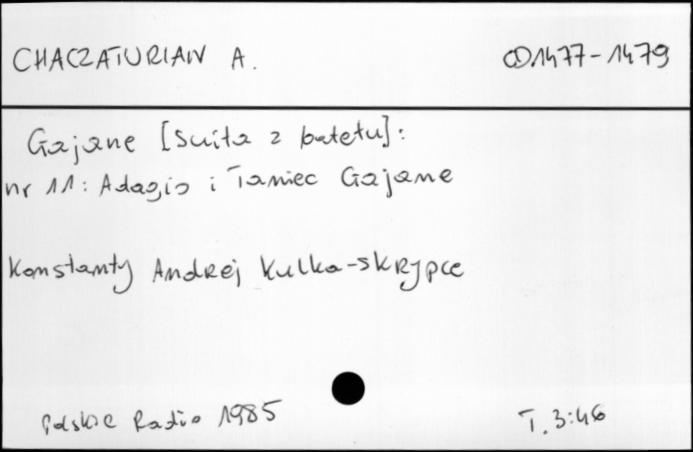 CHACZATURIAN A. CD1477-1479
Gajane [suita z baletu]:
nr 11: Adagio i Taniec Gajane
Konstanty Andrzej Kulka-skrzypce
Polskie Radio 1985 T. 3:46